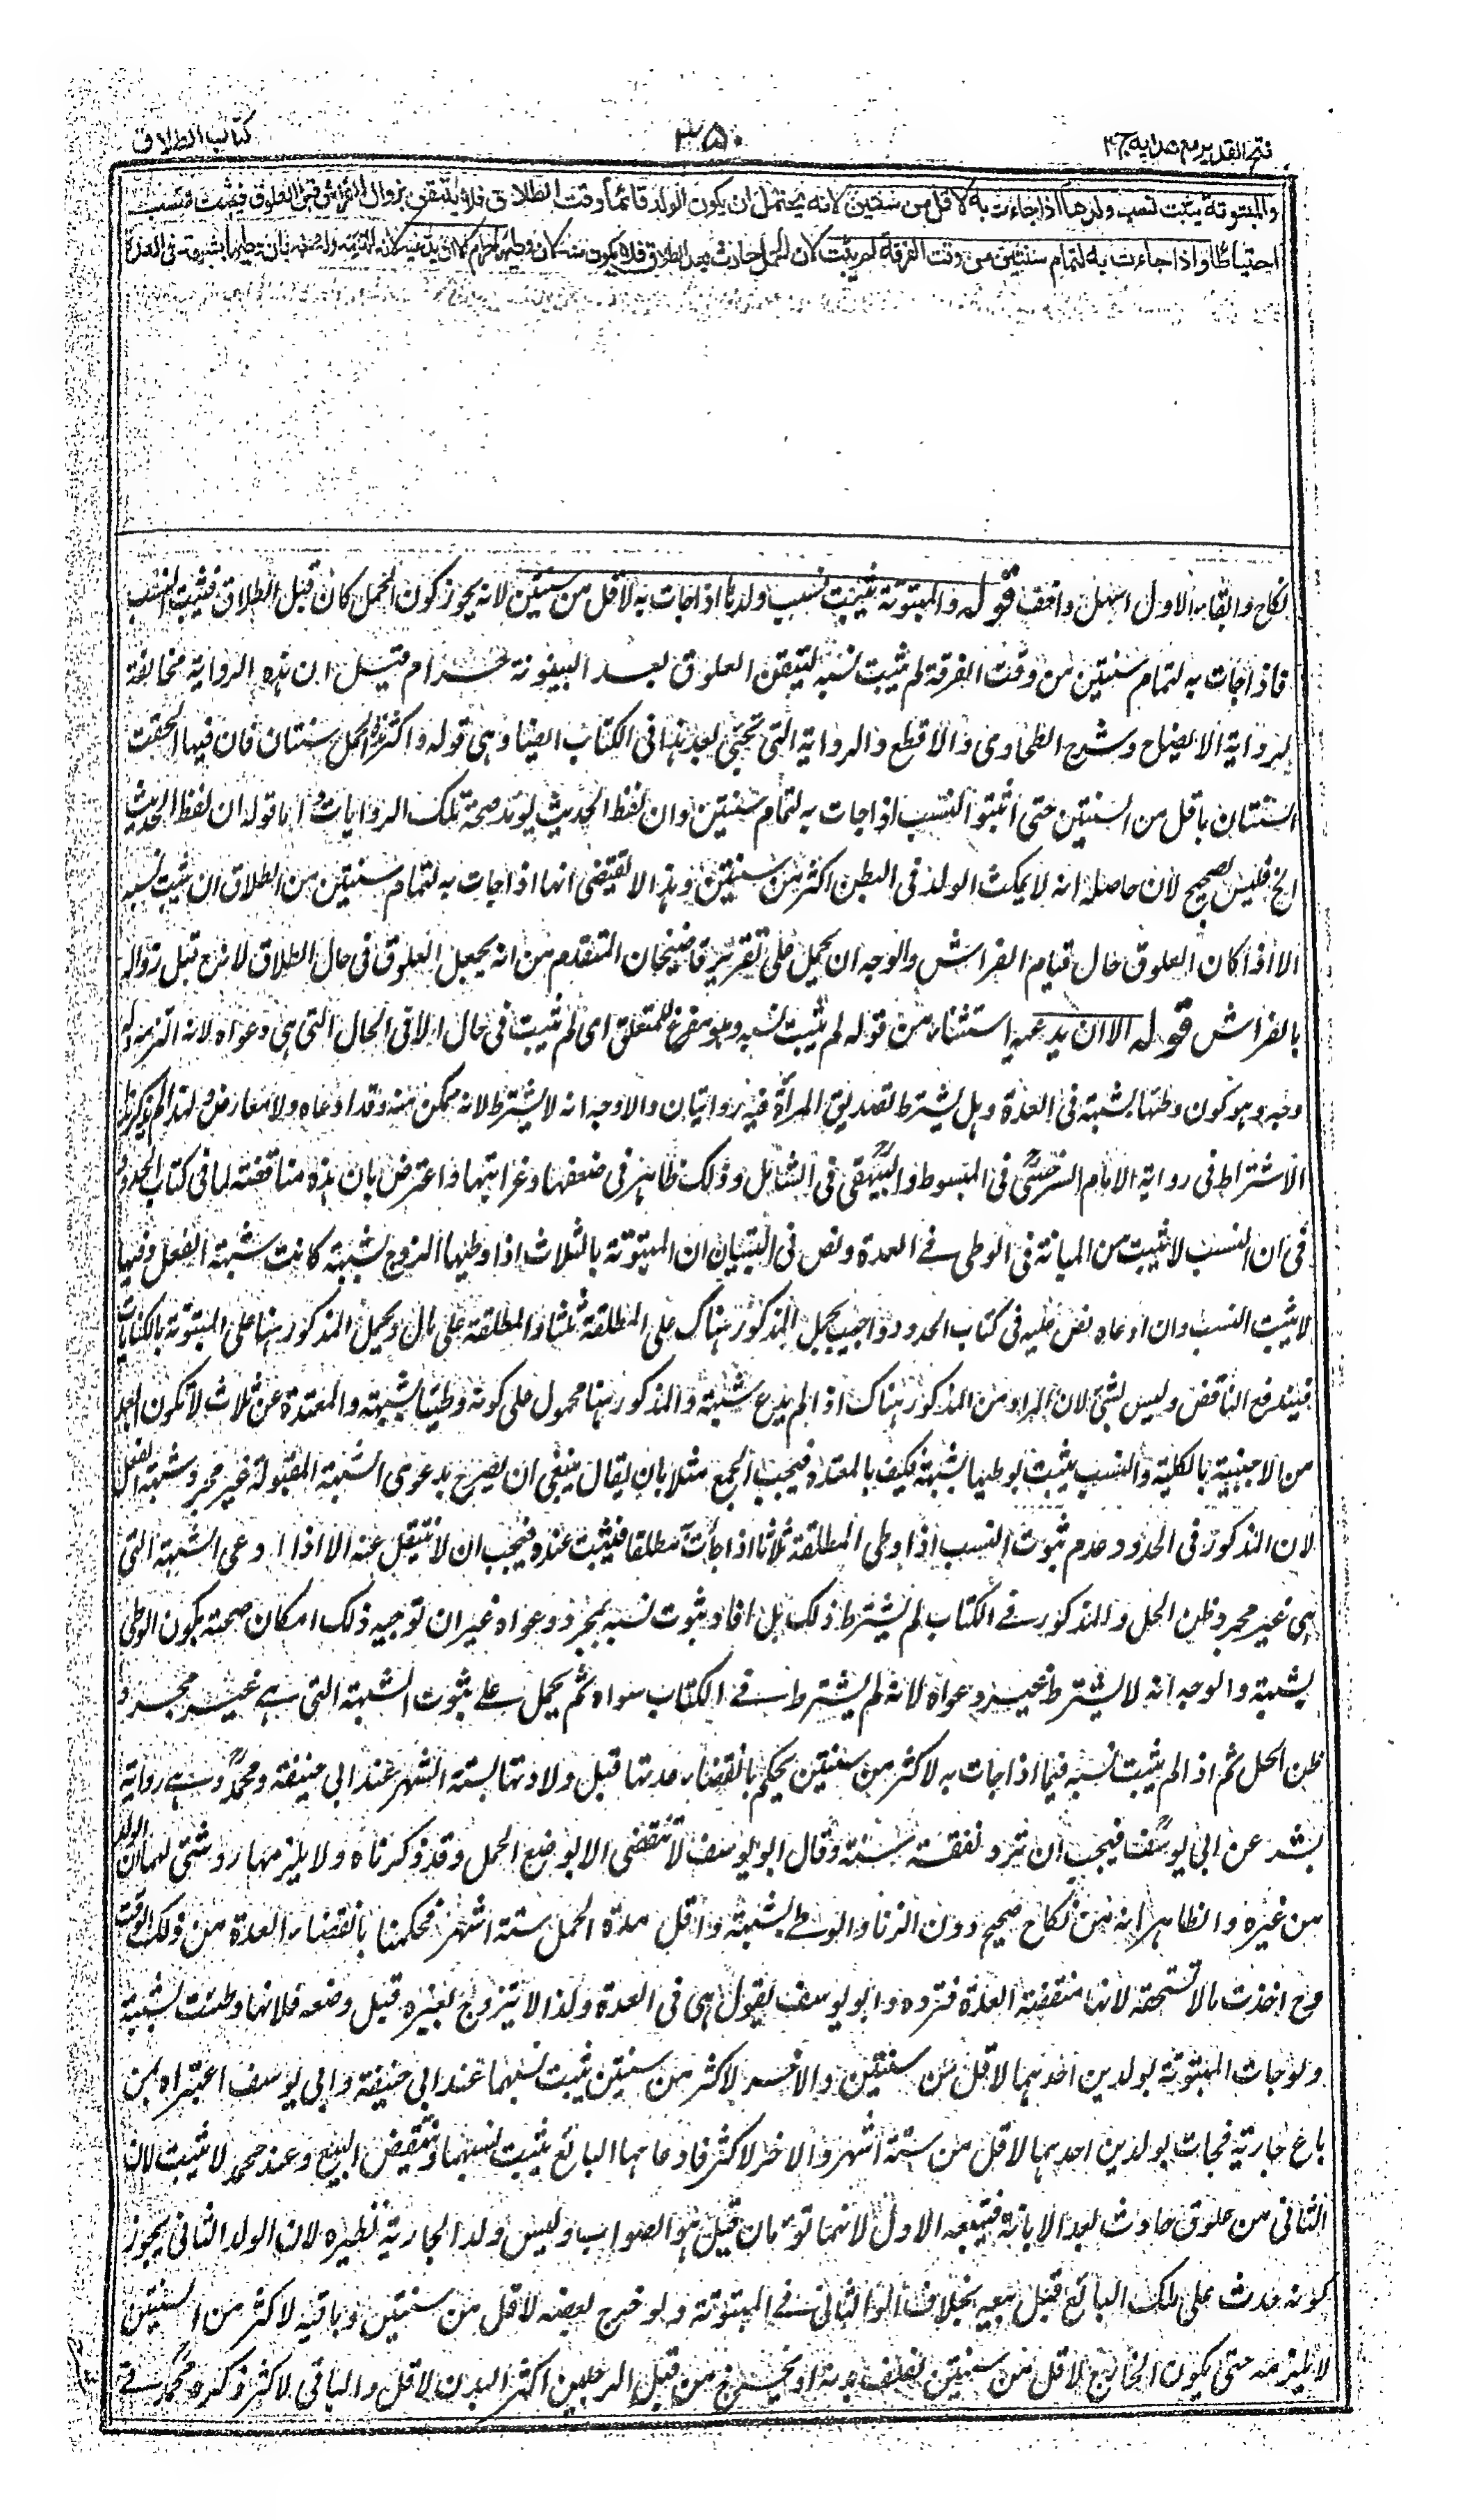 فتح القدير مع هدايه ج ٢
٣٥٠
كتاب الطلاق
والمبتوتة يثبت نسب ولدها اذا جاءت به لاقل من سنتين لانه يحتمل ان يكون الولد قائما وقت الطلاق فلا يتيقن بزوال الفراش قبل العلوق فيثبت النسب
احتياطا واذا جاءت به لتمام سنتين من وقت الفرقة لم يثبت لان الحمل حادث بعد الطلاق فلا يكون منه لان وطيها حرام الا ان يدعيه لانه التزمه وله وجه بان وطيها بشبهة فى العدة
نكاح وابقاء الاول اسهل واخف قوله والمبتوتة يثبت نسب ولدها اذا جات به لاقل من سنتين لانه يجوز كون الحمل كان قبل الطلاق فيثبت النسب
فاذا جات به لتمام سنتين من وقت الفرقة لم يثبت نسبه لتيقن العلوق بعد البينونة حرام قيل ان هذه الرواية مخالفة
لرواية الايضاح وشرح الطحاوى والاقطع والرواية التى تجئ بعد هذا فى الكتاب ايضا وهى قوله واكثر مدة الحمل سنتان فان فيها الحقت
السنتان باقل من السنتين حتى اثبتوا النسب اذا جات به لتمام سنتين وان لفظ الحديث يؤيد صحة تلك الروايات واما قوله ان لفظ الحديث
الخ فليس بصحيح لان حاصله انه لا يمكث الولد فى البطن اكثر من سنتين وهذا لا يقتضى انها اذا جات به لتمام سنتين من الطلاق ان يثبت نسبه
الا اذا كان العلوق حال قيام الفراش والوجه ان يحمل على تقرير قاضيخان المتقدم من انه يجعل العلوق فى حال الطلاق لانه قبل زواله
بالفراش قوله الا ان يدعيه استثناء من قوله لم يثبت نسبه وهو مفرغ للمتعلق اى لم يثبت فى حال الا فى الحال التى هى دعواه لانه التزمه وله
وجه وهو كون وطئها بشبهة فى العدة وهل يشترط تصديق المرأة فيه روايتان والاوجه انه لا يشترط لانه ممكن منه وقد ادعاه ولا معارض ولهذا لم يذكر
الاشتراط فى رواية الامام السرخسى فى المبسوط والبيهقى فى الشامل وذلك ظاهر فى ضعفها وغرابتها واعترض بان هذه مناقضة لما فى كتاب الحدود
فى ان النسب لا يثبت من المبانة فى الوطى فے العدة ونص فى التبيان ان المبتوتة بالثلاث اذا وطيها الزوج بشبهة كانت شبهة الفعل وفيها
لا يثبت النسب وان ادعاه نص عليه فى كتاب الحدود واجيب بحمل المذكور هناك على المطلقة ثلثا والمطلقة على مال ويحمل المذكور هنا على المبتوتة بالكنايات
فيندفع التناقض وليس بشئ لان المراد من المذكور هناك اذا لم يدع شبهة والمذكور هنا محمول على كونه وطيا بشبهة والمعتدة عن ثلاث لا تكون ابعد
من الاجنبية بالكلية والنسب يثبت بوطيها بشبهة فكيف بالمعتدة فيجب الجمع مثلا بان يقال ينبغى ان يصرح بدعوى الشبهة المقبولة غير مجرد شبهة الفعل
لان المذكور فى الحدود عدم ثبوت النسب اذا وطى المطلقة ثلاثا اذا جاءت مطلقا فيثبت عنده فيجب ان لا ينتقل عنه الا اذا ادعى الشبهة التى
هى غير مجرد ظن الحل والمذكور فے الكتاب لم يشترط ذلك بل افاد ثبوت نسبه بمجرد دعواه غير ان توجيه ذلك امكان صحته بكون الوطى
بشبهة والوجه انه لا يشترط غير دعواه لانه لم يشترط فے الكتاب سواه ثم يحمل علے ثبوت الشبهة التى ہے غير مجرد
ظن الحل ثم اذا لم يثبت نسبه فيما اذا جات به لاكثر من سنتين يحكم بانقضاء عدتها قبل ولادتها بستة اشهر عند ابى حنيفة ومحمد وہے رواية
بشر عن ابى يوسف فيجب ان ترد نفقة ستة وقال ابو يوسف لا تنقضى الا بوضع الحمل وقد ذكرناه ولا يلزمها رد شئ لهما ان الولد
من غيره والظاهر انه من نكاح صحيح دون الزنا والوطے بشبهة واقل مدة الحمل ستة اشهر فحكمنا بانقضاء العدة من ذلك الوقت
وح اخذت مالا تستحقه لانها منقضية العدة فترده وابو يوسف يقول هى فى العدة ولذا لا يتزوج بغيره قبل وضعه فلانها وطئت بشبهة
ولو جات المبتوتة بولدين احدهما لاقل من سنتين والاخر لاكثر من سنتين يثبت نسبهما عند ابى حنيفة وابى يوسف اعتبراه بمن
باع جارية فجات بولدين احدهما لاقل من ستة اشهر والاخر لاكثر فادعاهما البائع يثبت نسبهما وينتقض البيع وعند محمد لا يثبت لان
الثانى من علوق حادث بعد الابانة فيتبعه الاول لانهما توءمان قيل هو الصواب وليس ولد الجارية نظيره لان الولد الثانى يجوز
كونه حدث على ملك البائع قبل بيعه بخلاف الولد الثانى فے المبتوتة ولو خرج بعضه لاقل من سنتين وباقيه لاكثر من السنتين
لا يلزمه حتى يكون الخارج لاقل من سنتين نصف بدنه او يخرج من قبل الرجلين اكثر البدن لاقل والباقى لاكثر ذكره محمد فے